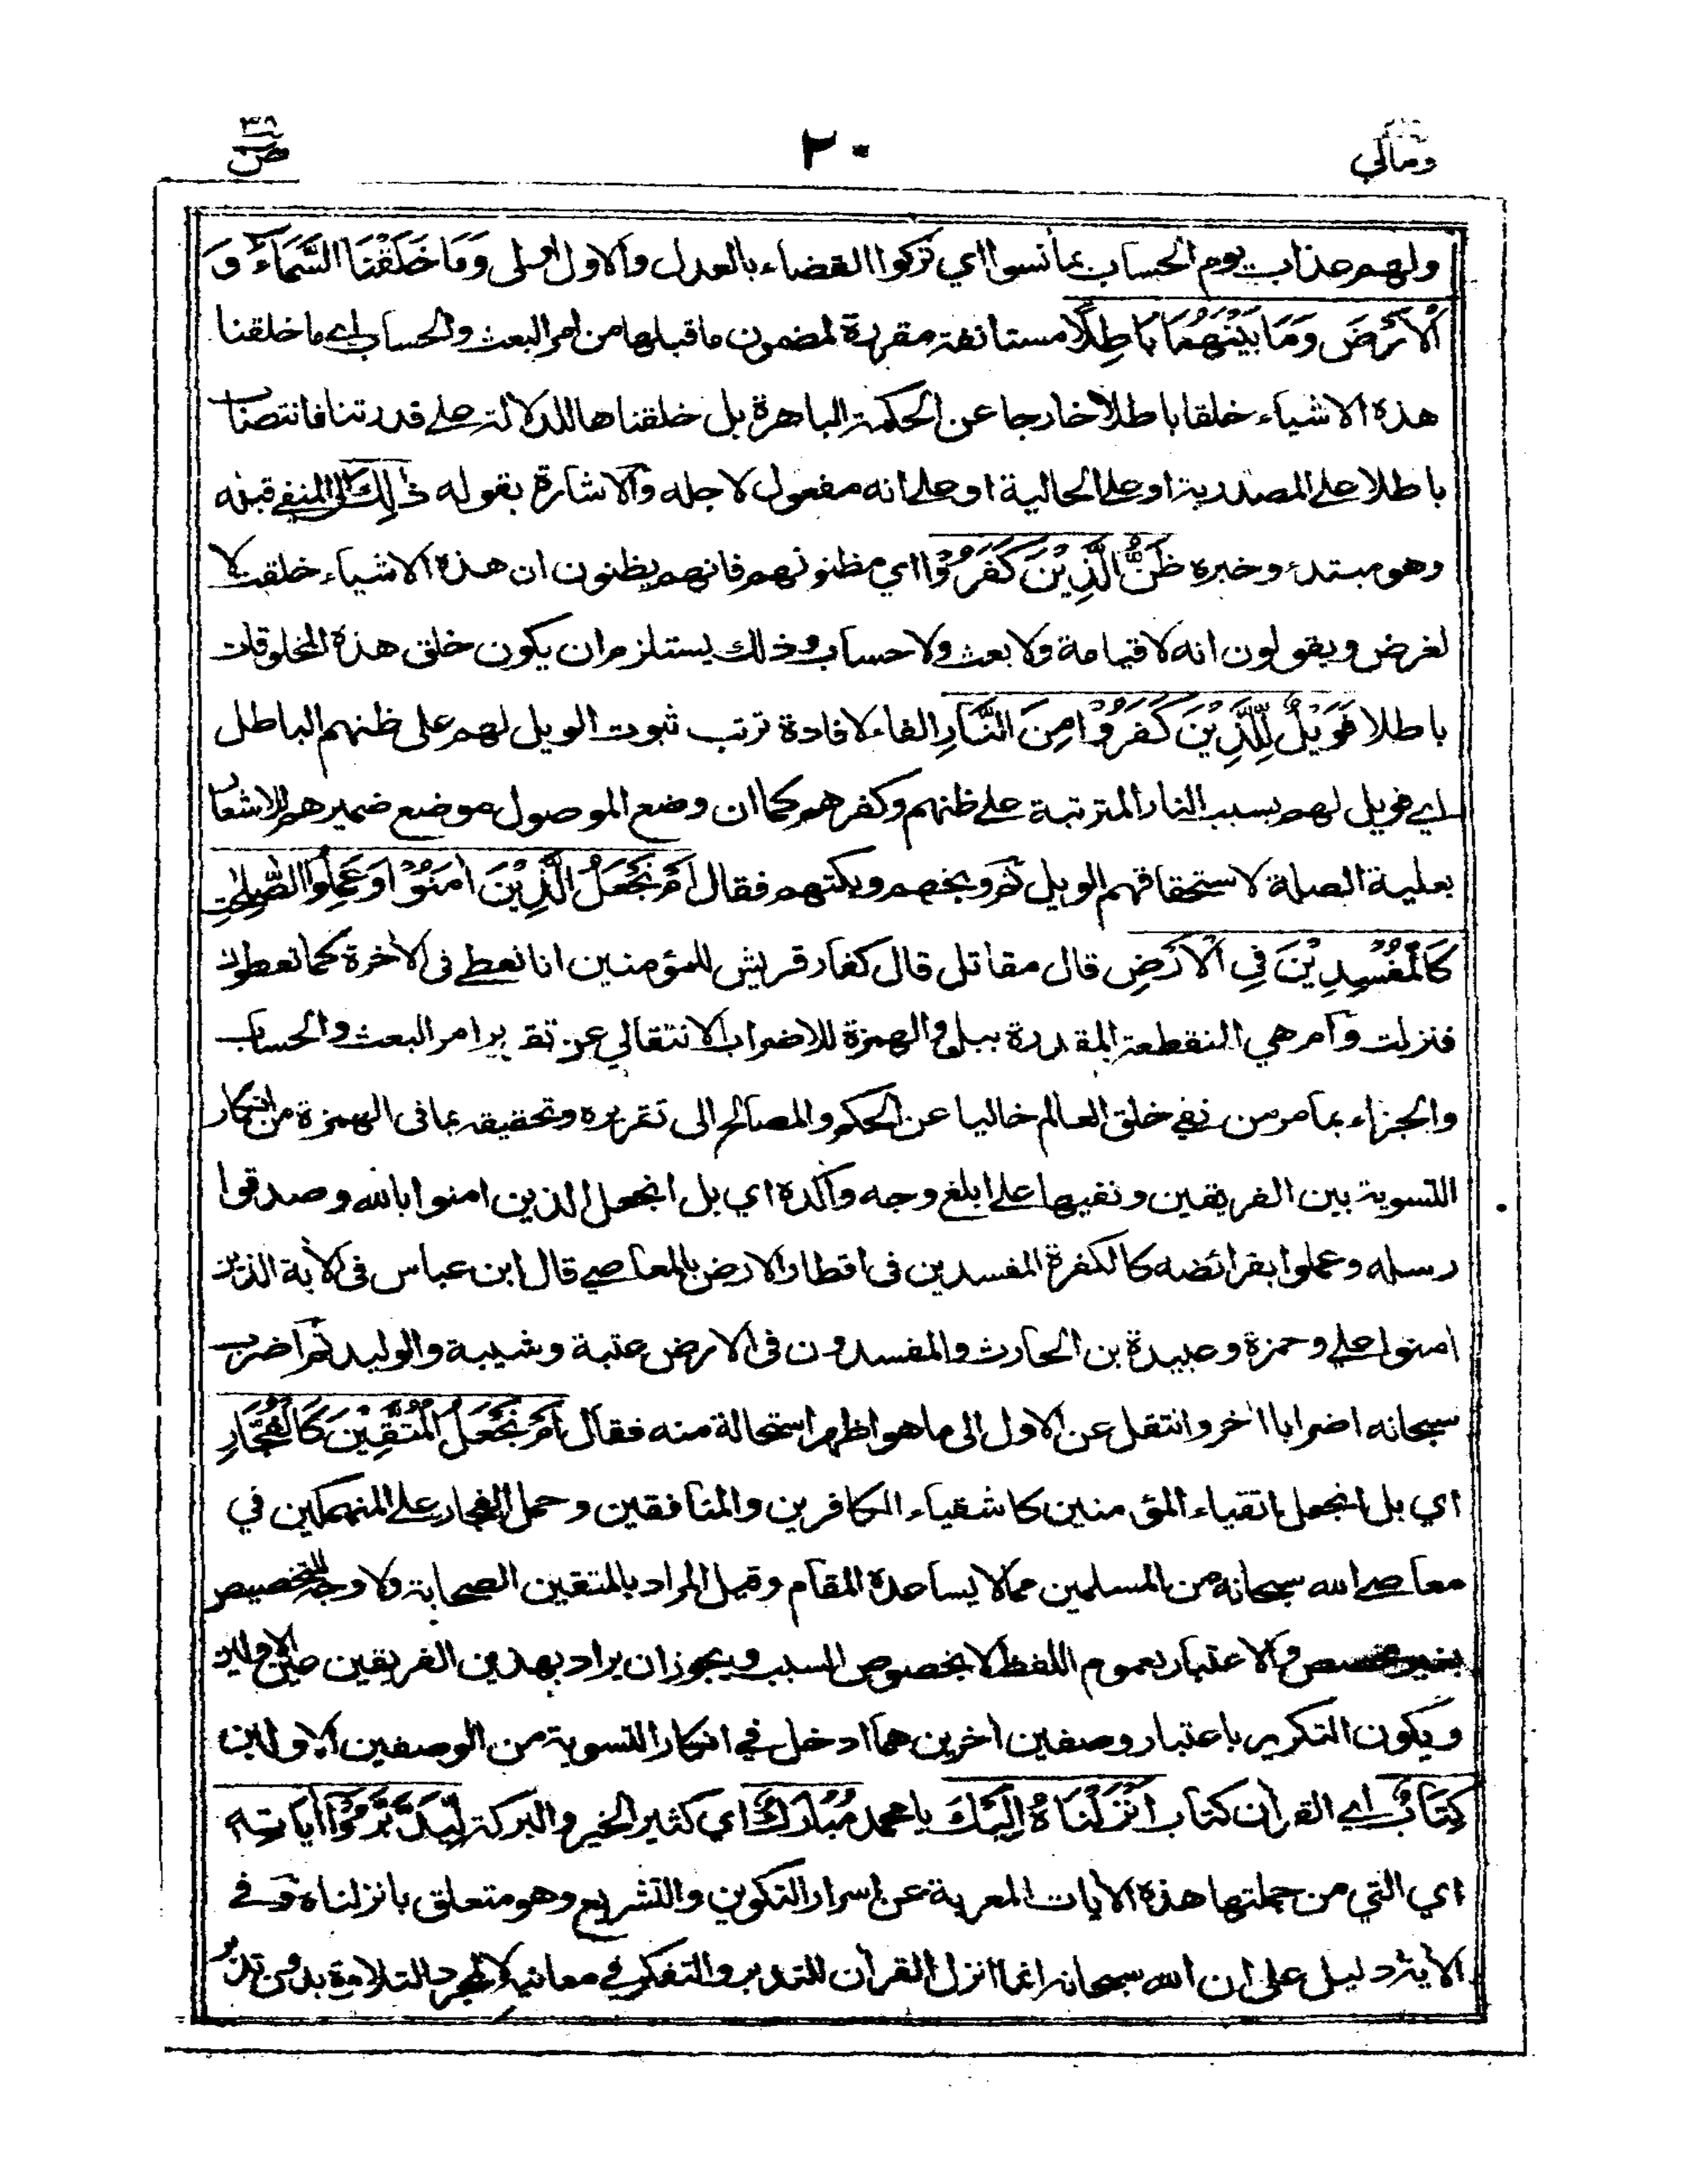 ومالي ٢٠ ص ٣٨
ولهم عذاب يوم الحساب بما نسوا اي تركوا القضاء بالعدل والاول اولى وَمَا خَلَقْنَا السَّمَاءَ وَ
الْاَرْضَ وَمَا بَيْنَهُمَا بَاطِلًا مستانفة مقررة لمضمون ما قبلها من امر البعث والحساب اي ما خلقنا
هذه الاشياء خلقا باطلا خارجا عن الحكمة الباهرة بل خلقناها للدلالة على قدرتنا فانتصاب
باطلا على المصدرية او على الحالية او على انه مفعول لاجله والاشارة بقوله ذٰلِكَ الى المنفي قبله
وهو مبتدء وخبره ظَنُّ الَّذِيْنَ كَفَرُوْا اي مظنونهم فانهم يظنون ان هذه الاشياء خلقت لا
لغرض ويقولون انه لا قيامة ولا بعث ولا حساب وذلك يستلزم ان يكون خلق هذه المخلوقات
باطلا فَوَيْلٌ لِّلَّذِيْنَ كَفَرُوْا مِنَ النَّارِ الفاء لافادة ترتب ثبوت الويل لهم على ظنهم الباطل
اي فويل لهم بسبب النار المترتبة على ظنهم وكفرهم كما ان وضع الموصول موضع ضميرهم للاشعار
بعلية الصلة لاستحقاقهم الويل ثم وبخهم وبكتهم فقال اَمْ نَجْعَلُ الَّذِيْنَ اٰمَنُوْا وَعَمِلُوا الصّٰلِحٰتِ
كَالْمُفْسِدِيْنَ فِي الْاَرْضِ قال مقاتل قال كفار قريش للمؤمنين انا نعطى في الاخرة كما تعطون
فنزلت وام هي المنقطعة المقدرة ببل والهمزة للاضراب الانتقالي عن تقرير امر البعث والحساب
والجزاء بما مر من نفي خلق العالم خاليا عن الحكم والمصالح الى تقريره وتحقيقه بما في الهمزة من انكار
التسوية بين الفريقين ونفيها على ابلغ وجه واكده اي بل انجعل الذين امنوا بالله وصدقوا
رسله وعملوا بفرائضه كالكفرة المفسدين في اقطار الارض بالمعاصي قال ابن عباس في الاية الذين
امنوا علي وحمزة وعبيدة بن الحارث والمفسدون في الارض عتبة وشيبة والوليد ثم اضرب
سبحانه اضرابا اخر وانتقل عن الاول الى ما هو اظهر استحالة منه فقال اَمْ نَجْعَلُ الْمُتَّقِيْنَ كَالْفُجَّارِ
اي بل انجعل اتقياء المؤمنين كاشقياء الكافرين والمنافقين وحمل الفجار على المنهمكين في
معاصي الله سبحانه من المسلمين مما لا يساعده المقام وقيل المراد بالمتقين الصحابة ولا وجه للتخصيص
بغير مخصص والاعتبار بعموم اللفظ لا بخصوص السبب ويجوز ان يراد بهذين الفريقين عين الاولين
ويكون التكرير باعتبار وصفين اخرين هما ادخل في انكار التسوية من الوصفين الاولين
كِتَابٌ اي القرآن كتاب اَنْزَلْنَاهُ اِلَيْكَ يا محمد مُبَارَكٌ اي كثير الخير والبركة لِّيَدَّبَّرُوْا اٰيَاتِهٖ
اي التي من جملتها هذه الايات المعربة عن اسرار التكوين والتشريع وهو متعلق بانزلناه وفي
الاية دليل على ان الله سبحانه انما انزل القرآن للتدبر والتفكر في معانيه لا لمجرد التلاوة بدون تدبر